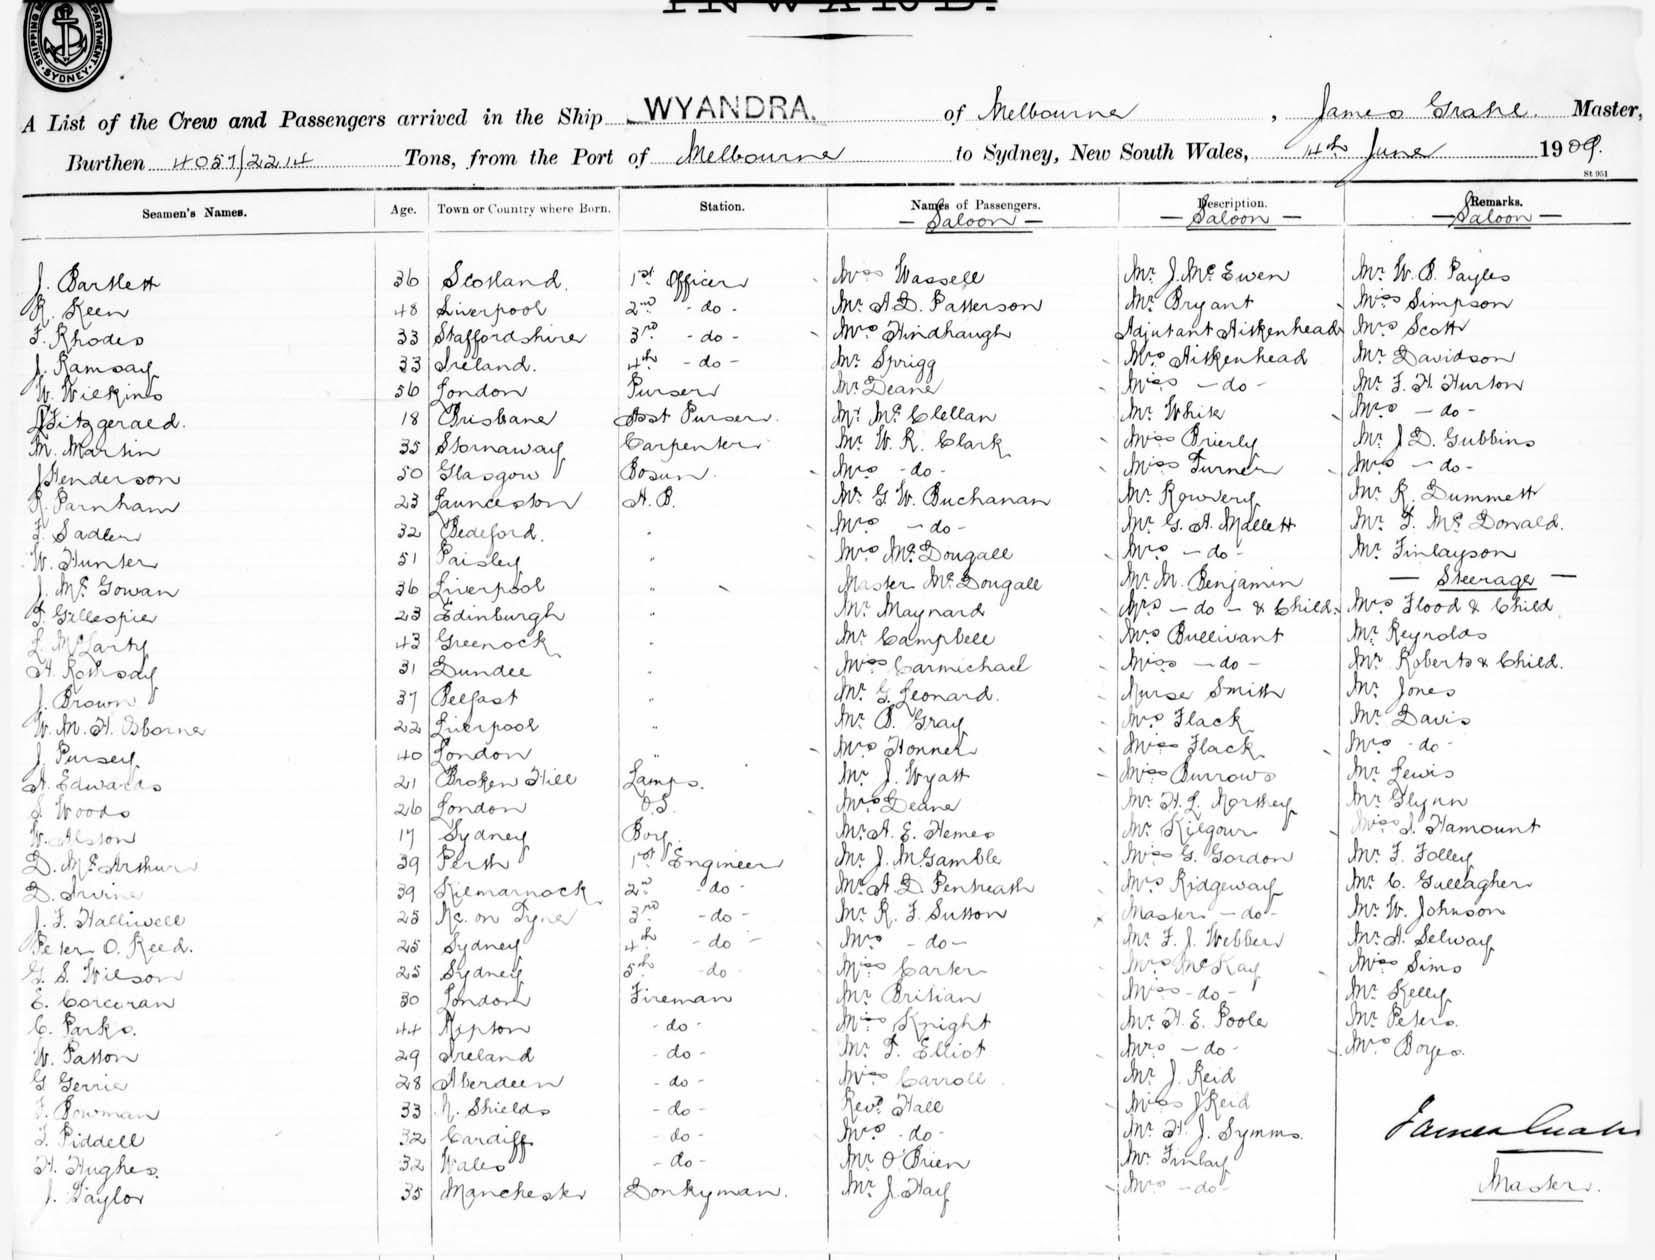 INWARD.
SHIPPING DEPARTMENT. SYDNEY.
A List of the Crew and Passengers arrived in the Ship WYANDRA. of Melbourne, James Grahl. Master,
Burthen 4057/2214 Tons, from the Port of Melbourne to Sydney, New South Wales, 14th June 1909.
St 951
Seamen's Names. Age. Town or Country where Born. Station. Names of Passengers. Description. Remarks.
— Saloon — — Saloon — — Saloon —
J. Bartlett 36 Scotland. 1st Officer Miss Wassell Mr. J. McEwen Mr. W. B. Payles
R. Keen 48 Liverpool 2nd - do - Mr. A. D. Patterson Mr. Bryant Miss Simpson
F. Rhodes 33 Staffordshire 3rd - do - Mrs Hindhaugh Adjutant Aitkenhead Mrs Scott
J. Ramsay 33 Ireland. 4th - do - Mr. Sprigg Mrs Aitkenhead Mr. Davidson
W. Wilkins 56 London Purser Mr. Deane Miss - do - Mr. F. H. Hurton
Fitzgerald. 18 Brisbane Asst Purser. Mr. McClellan Mr. White Mrs - do -
M. Martin 35 Stornaway Carpenter Mr. W. R. Clark Miss Brierly Mr. J. D. Gubbins
J Henderson 50 Glasgow Bosun. Mrs - do - Miss Turner Mrs - do -
R. Parnham 23 Launceston A. B. Mr. G. W. Buchanan Mr. Rowery Mr. R. Dummett
F. Sadler 32 Bedeford. " Mrs - do - Mr. G. A. Mallett Mr. F. McDonald.
W. Hunter 51 Paisley " Mrs McDougall Mrs - do - Mr. Finlayson
J. McGowan 36 Liverpool " Master McDougall Mr. M. Benjamin — Steerage —
T. Gillespie 23 Edinburgh " Mr. Maynard Mrs - do - & Child. Mrs Flood & Child
L. McLarty 43 Greenock " Mr. Campbell Mrs Bullivant Mr. Reynolds
H. Rothsay 31 Dundee " Miss Carmichael Miss - do - Mr. Roberts & Child.
J. Brown 37 Belfast " Mr. G. Leonard. Nurse Smith Mr. Jones
W. M. H. Osborne 22 Liverpool " Mr. B. Gray Mrs Flack Mr. Davis
J. Pursey 40 London " Mrs Honner Miss Flack Mrs - do -
A. Edwards 21 Broken Hill Lamps. Mr. J. Wyatt Miss Burrows Mr. Lewis
S. Woods 26 London O.S. Mrs Deane Mr. H. L. Mr. Flynn
W. Alston 17 Sydney Boy Mr. A. E. Hemes Mr. Kilgour Miss S. Hamount
D. McArthur 39 Perth 1st Engineer Mr. J. McGamble Miss G. Gordon Mr. F. Folley
D. Irvine 39 Kilmarnock 2nd - do - Mr. A. D. Pentreath Mrs Ridgeway Mr. C. Gallagher
J. F. Halliwell 25 Nc. on Tyne 3rd - do - Mr. R. F. Sutton Master - do - Mr. W. Johnson
Peter O. Reed. 25 Sydney 4th - do - Mrs - do - Mr. F. J. Webber Mr. A. Selway
G. S. Wilson 25 Sydney 5th - do - Miss Carter Mrs McKay Miss Sims
E. Corcoran 30 London Fireman Mr. Britian Miss - do - Mr. Kelly
C. Parks. 44 Ripton - do - Miss Knight Mr. H. E. Poole Mr. Peters.
W. Patton 29 Ireland - do - Mr. T. Elliot Mrs - do - Mrs Boyes.
G Gerrie 28 Aberdeen - do - Miss Carroll Mr. J. Reid
F. Bowman 33 N. Shields - do - Revd. Hall Miss J Reid
F. Piddell 32 Cardiff - do - Mrs - do - Mr. H. J. Symms.
H. Hughes. 32 Wales - do - Mr. O'Brien Mr. Finlay
J. Taylor 35 Manchester Donkyman. Mr. J. Hay Mrs - do -
James Grahl
Master.